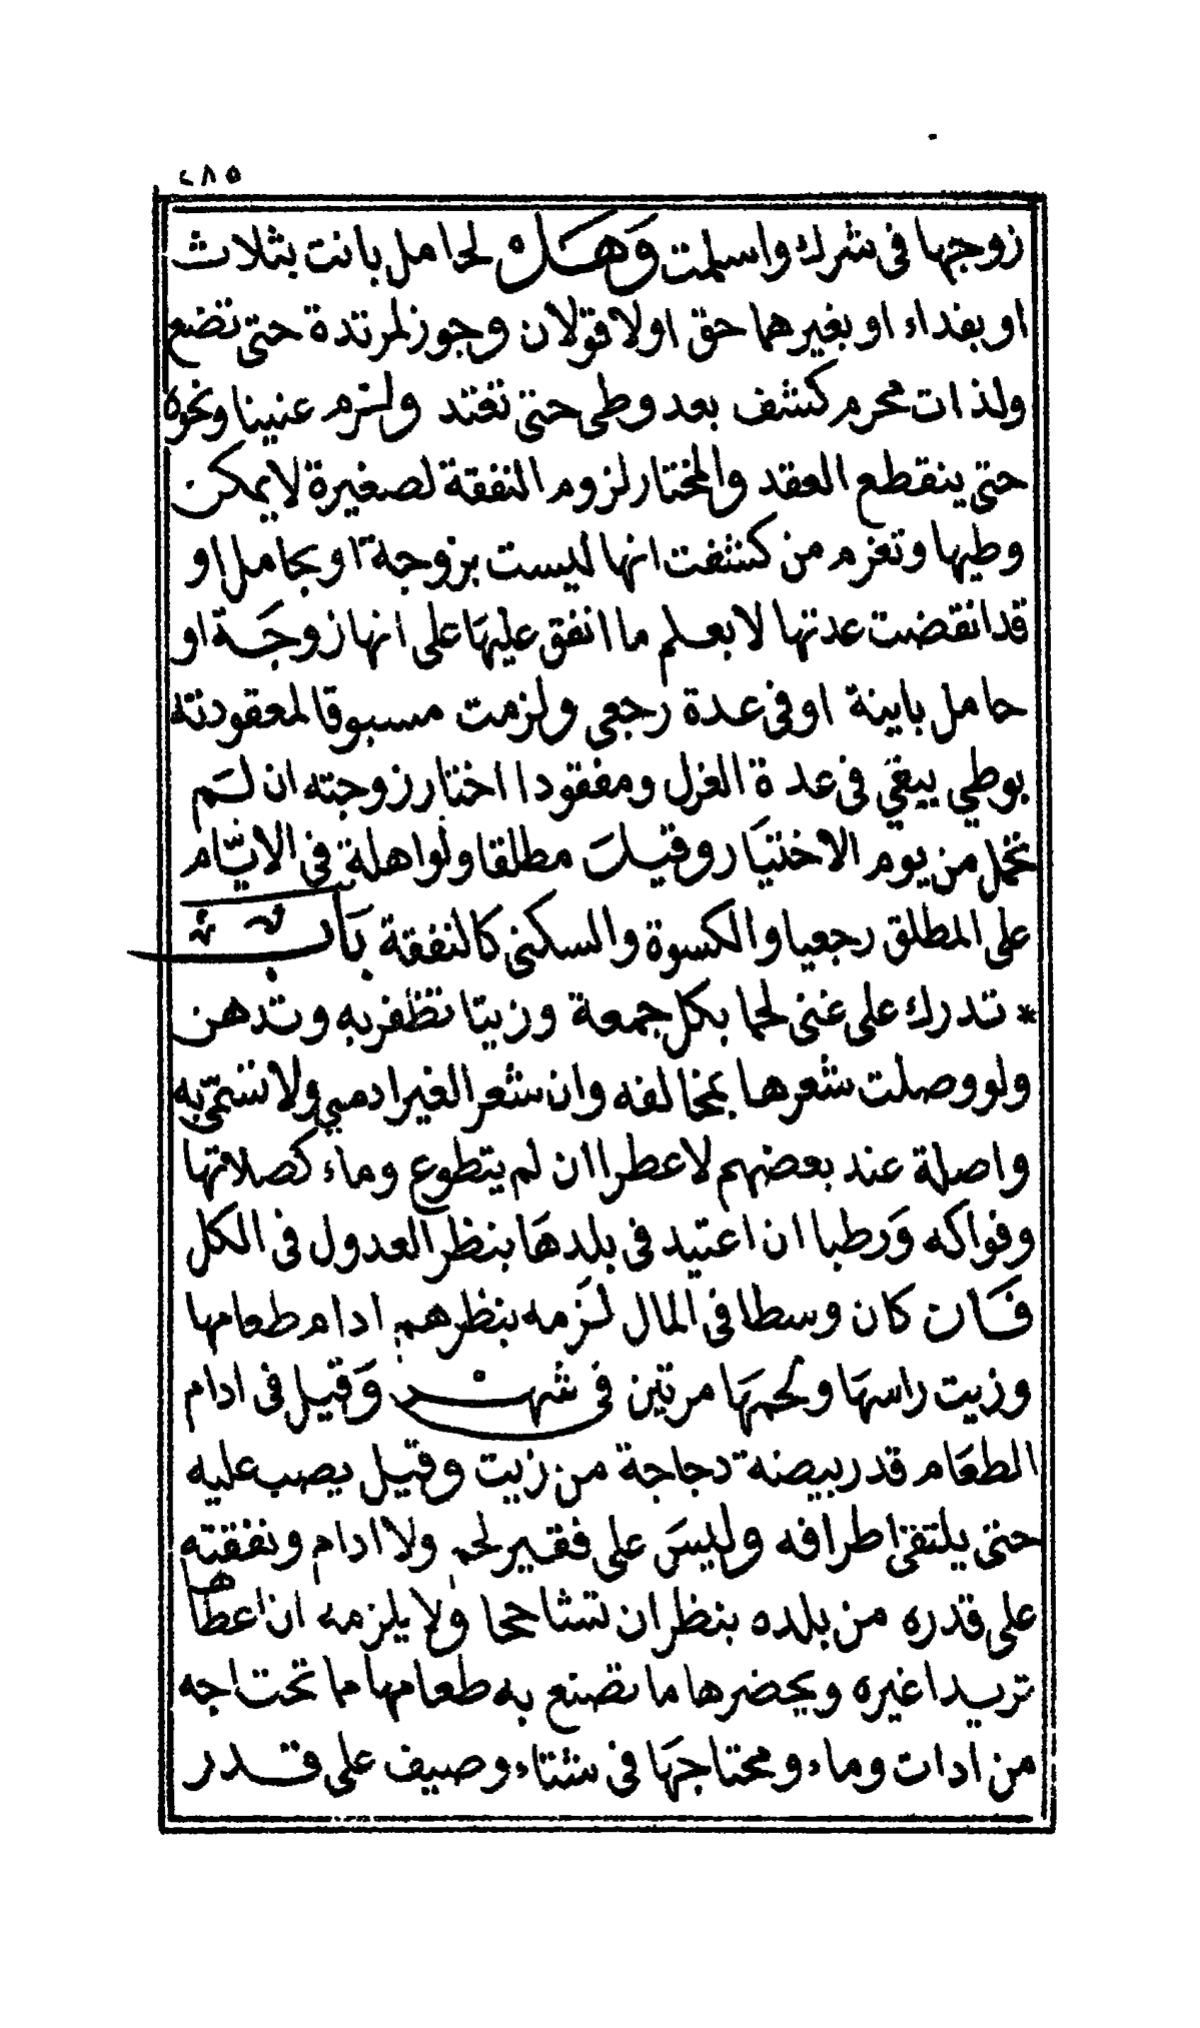 ٢٨٥
زوجها فى شرك واسلمت وهل لحامل بانت بثلاث
او بفداء او بغيرهما حق اولا قولان وجوز لمرتدة حتى تضع
ولذات محرم كشف بعد وطى حتى تعتد ولزم عنينا ونحوه
حتى ينقطع العقد والمختار لزوم النفقة لصغيرة لا يمكن
وطيها وتغرم من كشفت انها ليست بزوجة او بحامل او
قد انقضت عدتها لا بعلم ما انفق عليها على انها زوجة او
حامل باينة او فى عدة رجعى ولزمت مسبوقا لمعقودته
بوطي يبقي فى عدة الغزل ومفقودا اختار زوجته ان لم
تحمل من يوم الاختيار وقيل مطلقا ولواهلة فى الايام
على المطلق رجعيا والكسوة والسكنى كالنفقة باب
* تدرك على غنى لحما بكل جمعة وزيتا تظفر به وتدهن
ولو وصلت شعرها بمخالفه وان شعر الغير ادمي ولا تسمّى به
واصلة عند بعضهم لا عطرا ان لم يتطوع وماء كصلاتها
وفواكه ورطبا ان اعتيد فى بلدها بنظر العدول فى الكل
فان كان وسطا فى المال لزمه بنظرهم ادام طعامها
وزيت راسها ولحمها مرتين فى شهر وقيل فى ادام
الطعام قدر بيضة دجاجة من زيت وقيل يصب عليه
حتى يلتقى اطرافه وليس على فقير لحم ولا ادام ونفقته
على قدره من بلده بنظر ان تشاححا ولا يلزمه ان اعطاها
تريدا غيره ويحضرها ما تصنع به طعامها مما تحتاجه
من ادات وماء ومحتاجها فى شتاء وصيف على قدر